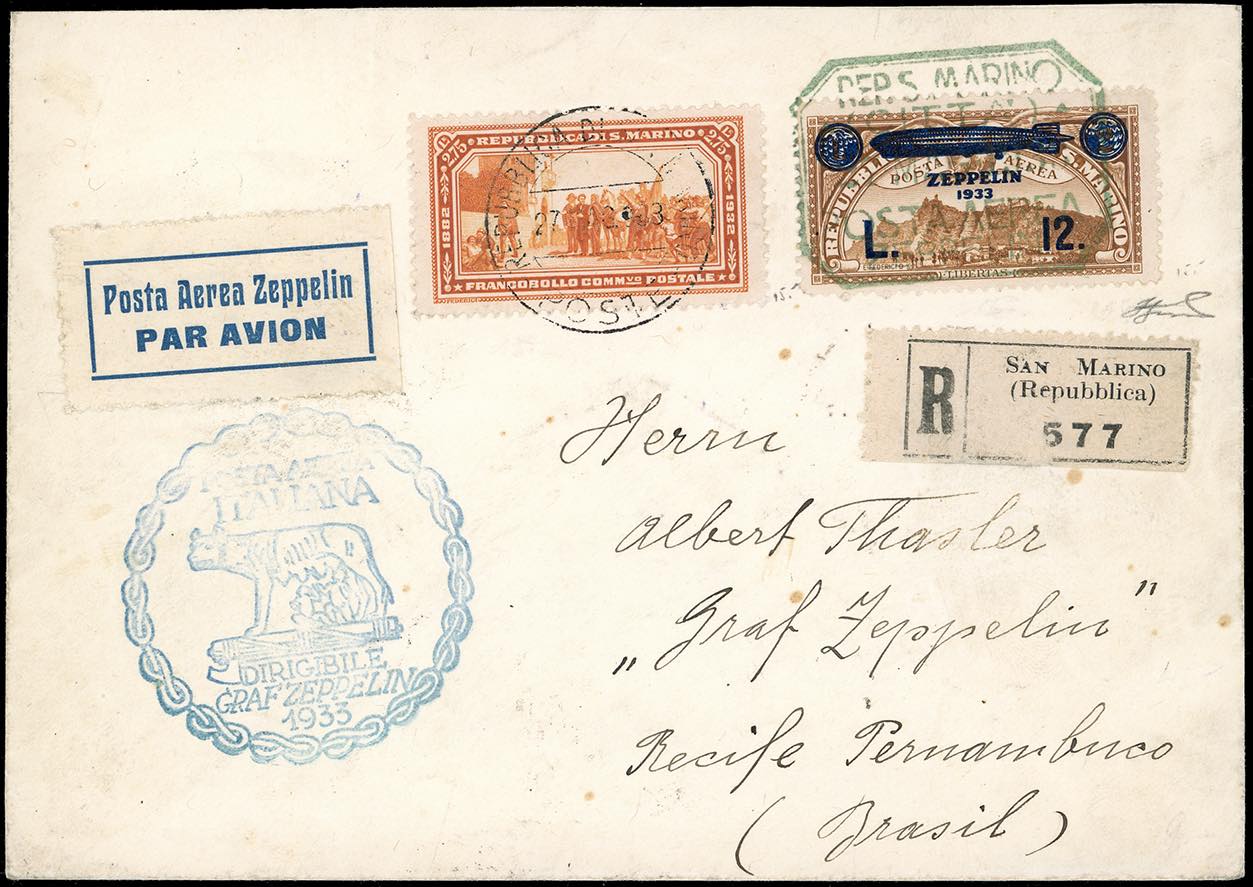 REPUBBLICA DI S. MARINO
L. 2.75
2.75 L.
1882
1932
FRANCOBOLLO COMMVO POSTALE
REPUBBLICA DI
27
POSTE
REP. S. MARINO
POSTA AEREA
REPUBBLICA DI S. MARINO
POSTA AEREA
ZEPPELIN
1933
L. 12.
LIBERTAS
Posta Aerea Zeppelin
PAR AVION
R
SAN MARINO
(Repubblica)
577
POSTA AEREA
ITALIANA
DIRIGIBILE
GRAF ZEPPELIN
1933
Herrn
Albert Thasler
„Graf Zeppelin"
Recife Pernambuco
(Brasil)